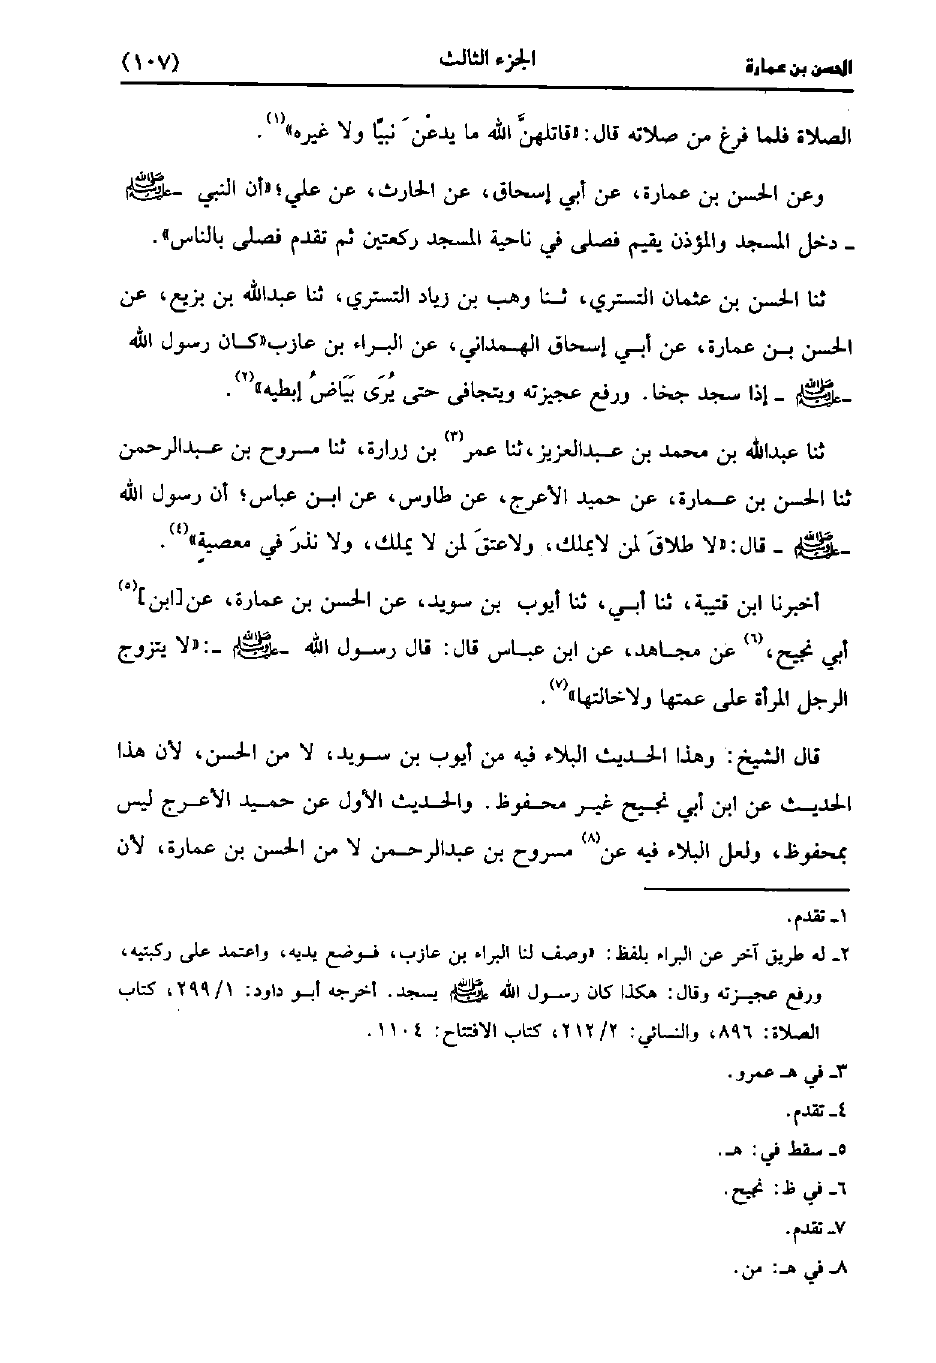 الحسن بن عمارة الجزء الثالث (١٠٧)
الصلاة فلما فرغ من صلاته قال: «قاتلهنَّ الله ما يدعْن َ نبيًّا ولا غيره»(١).
وعن الحسن بن عمارة، عن أبي إسحاق، عن الحارث، عن علي؛ «أن النبي ـ ﷺ
ـ دخل المسجد والمؤذن يقيم فصلى في ناحية المسجد ركعتين ثم تقدم فصلى بالناس».
ثنا الحسن بن عثمان التستري، ثنا وهب بن زياد التستري، ثنا عبدالله بن بزيع، عن
الحسن بن عمارة، عن أبي إسحاق الهمداني، عن البراء بن عازب «كان رسول الله
ـ ﷺ ـ إذا سجد جخا. ورفع عجيزته ويتجافى حتى يُرَى بَيَاضُ إبطيه»(٢).
ثنا عبدالله بن محمد بن عبدالعزيز، ثنا عمر(٣) بن زرارة، ثنا مسروح بن عبدالرحمن
ثنا الحسن بن عمارة، عن حميد الأعرج، عن طاوس، عن ابن عباس؛ أن رسول الله
ـ ﷺ ـ قال: «لا طلاقَ لمن لايملك، ولاعتقَ لمن لا يملك، ولا نذرَ في معصيةٍ»(٤).
أخبرنا ابن قتيبة، ثنا أبي، ثنا أيوب بن سويد، عن الحسن بن عمارة، عن [ابن](٥)
أبي نجيح،(٦) عن مجاهد، عن ابن عباس قال: قال رسول الله ـ ﷺ ـ: «لا يتزوج
الرجل المرأة على عمتها ولاخالتها»(٧).
قال الشيخ: وهذا الحديث البلاء فيه من أيوب بن سويد، لا من الحسن، لأن هذا
الحديث عن ابن أبي نجيح غير محفوظ. والحديث الأول عن حميد الأعرج ليس
بمحفوظ، ولعل البلاء فيه عن(٨) مسروح بن عبدالرحمن لا من الحسن بن عمارة، لأن
١ـ تقدم.
٢ـ له طريق آخر عن البراء بلفظ: «وصف لنا البراء بن عازب، فوضع يديه، واعتمد على ركبتيه،
ورفع عجيزته وقال: هكذا كان رسول الله ﷺ يسجد. أخرجه أبو داود: ٢٩٩/١، كتاب
الصلاة: ٨٩٦، والنسائي: ٢١٢/٢، كتاب الافتتاح: ١١٠٤.
٣ـ في هـ عمرو.
٤ـ تقدم.
٥ـ سقط في: هـ.
٦ـ في ظ: نجيح.
٧ـ تقدم.
٨ـ في هـ: من.